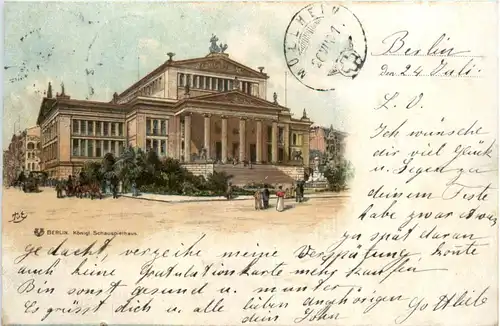 MÜLHEIM
Berlin
den 24 Juli.
L. O.
Ich wünsche
dir viel Glück
u. Segen zu
deinem Feste
habe zwar etwas
zu spat daran
BERLIN. Königl. Schauspielhaus.
gedacht, verzeihe meine Verspätung, konte
auch keine Gratulationkarte mehr kaufen
Bin sonst gesund u. munter
Es grüsst dich u. alle lieben anghörigen
dein Sohn Gottlieb